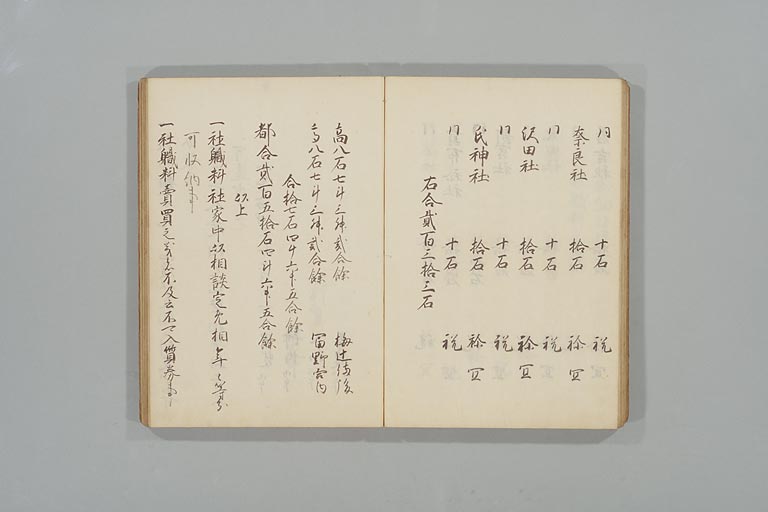 同 十石 祝
奈良社 拾石 祢宜
同 十石 祝
沢田社 拾石 祢宜
同 十石 祝
氏神社 拾石 祢宜
同 十石 祝
右合貳百三拾三石
高八石七斗三升貳合餘 梅辻
高八石七斗三升貳合餘 富野宮内
合拾七石四斗六升五合餘
都合貳百五拾石四斗六升五合餘
以上
一社職料社家中以相談定免相年
可収納事
一社職料賣買之不及云不可入質券事